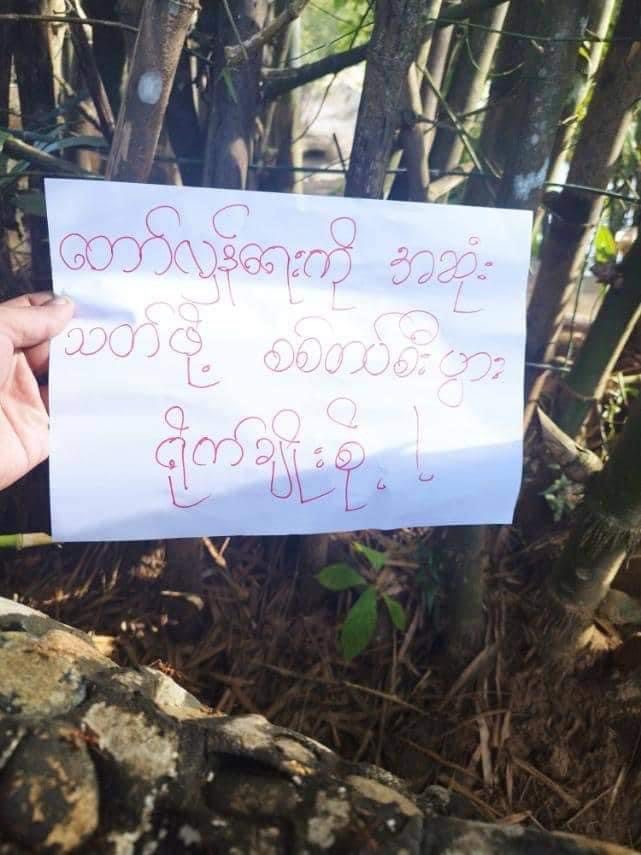 တော်လှန်ရေးကို အဆုံး
သတ်ဖို့ စစ်တပ်စီးပွား
ရိုက်ချိုးစို့ ။